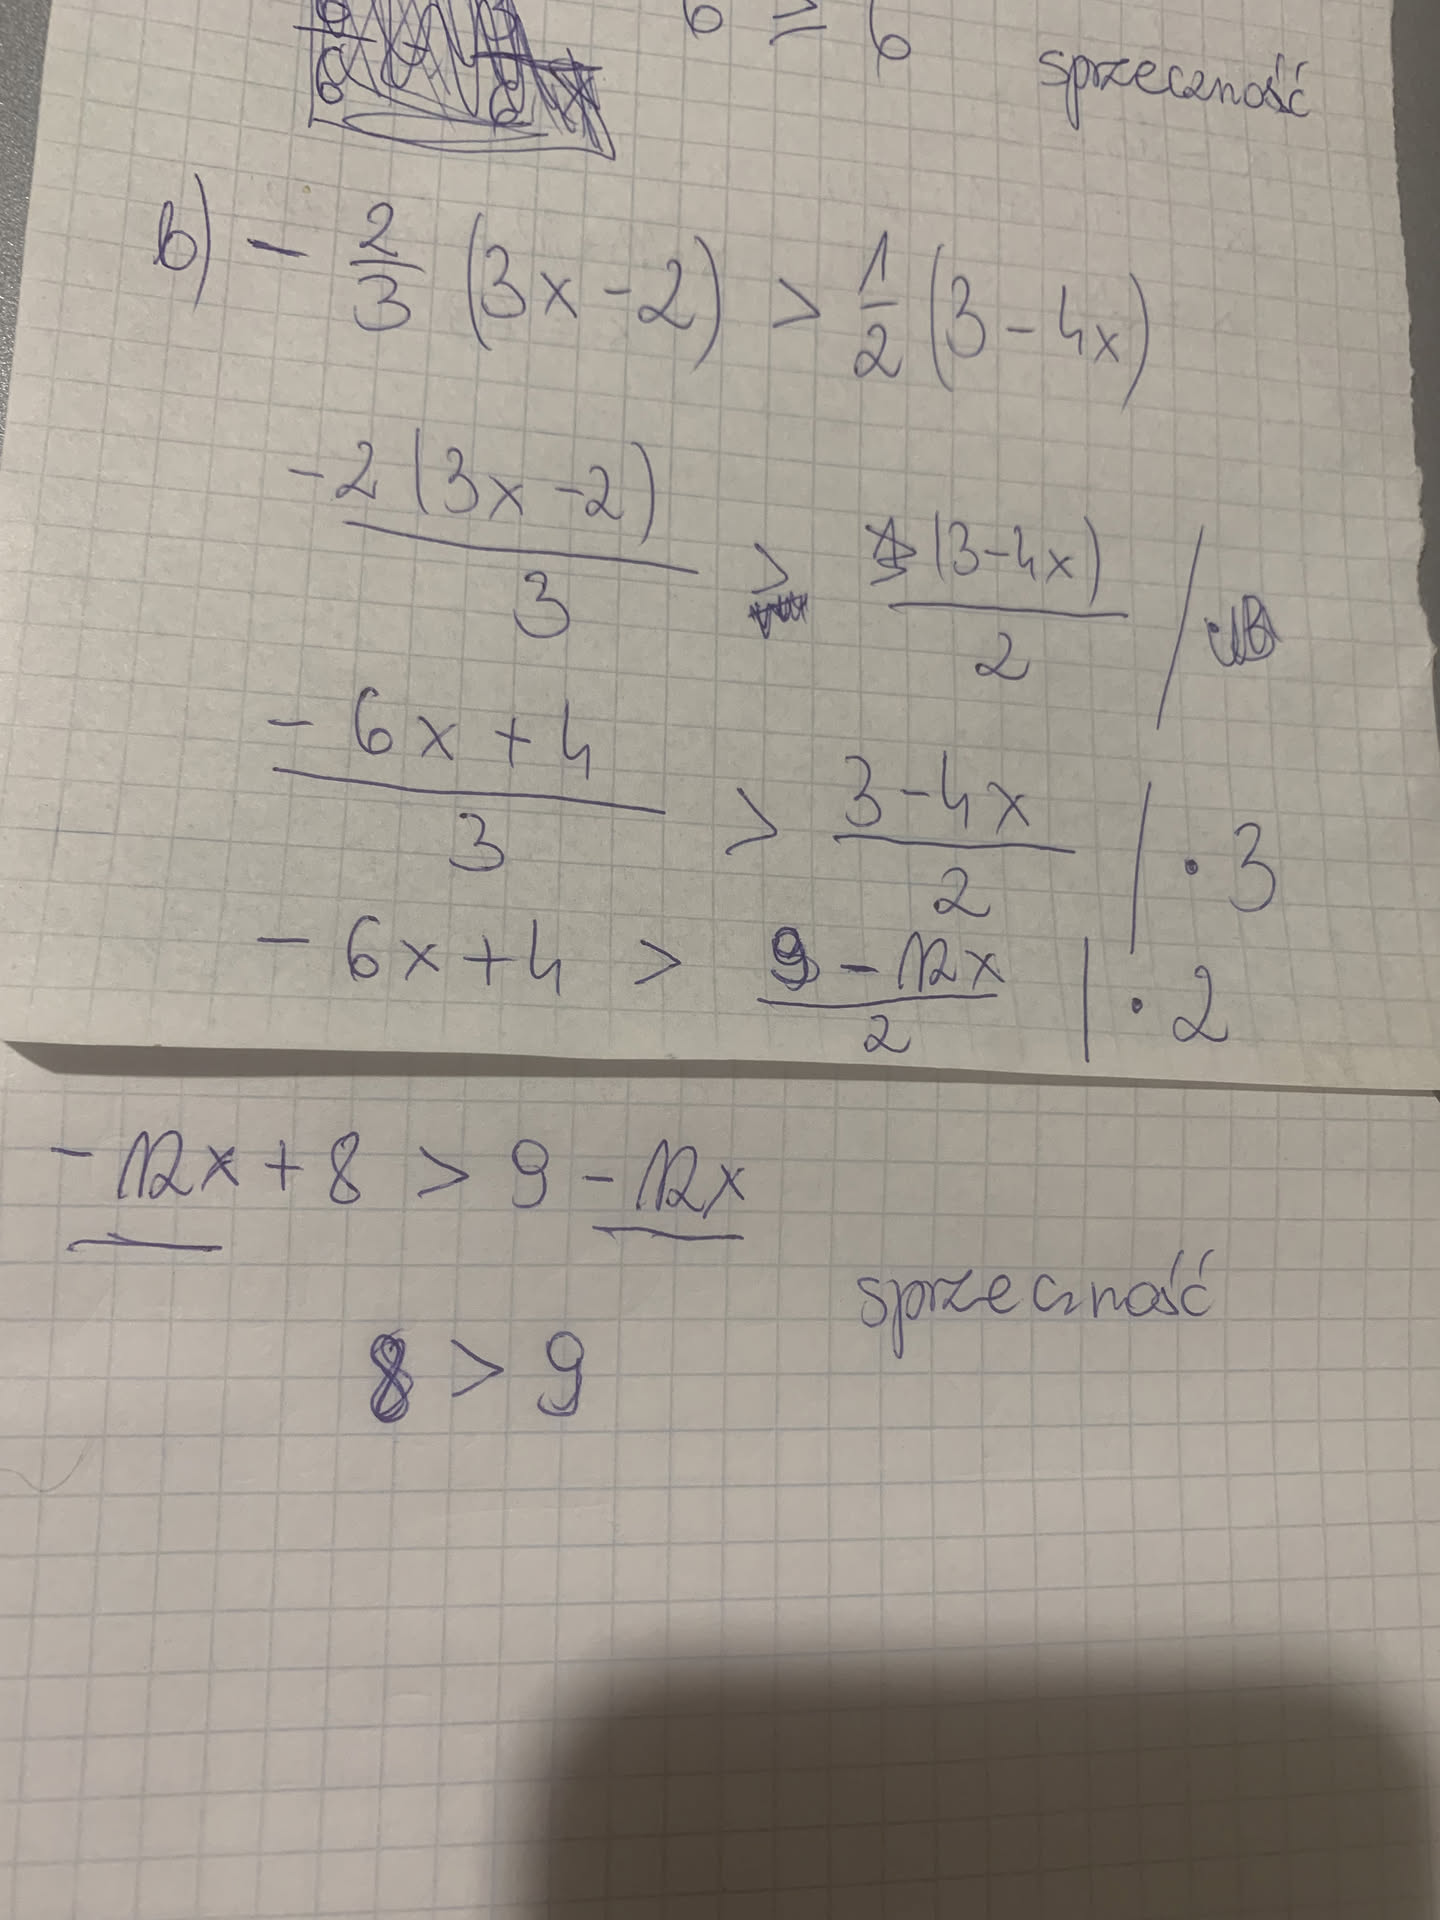 6 ≥ 6
sprzeczność
b) - 2/3 (3x - 2) > 1/2 (3 - 4x)
-2(3x - 2)/3 > (3 - 4x)/2 /
- 6x + 4/3 > 3 - 4x/2 | · 3
- 6x + 4 > 9 - 12x/2 | · 2
- 12x + 8 > 9 - 12x
sprzeczność
8 > 9